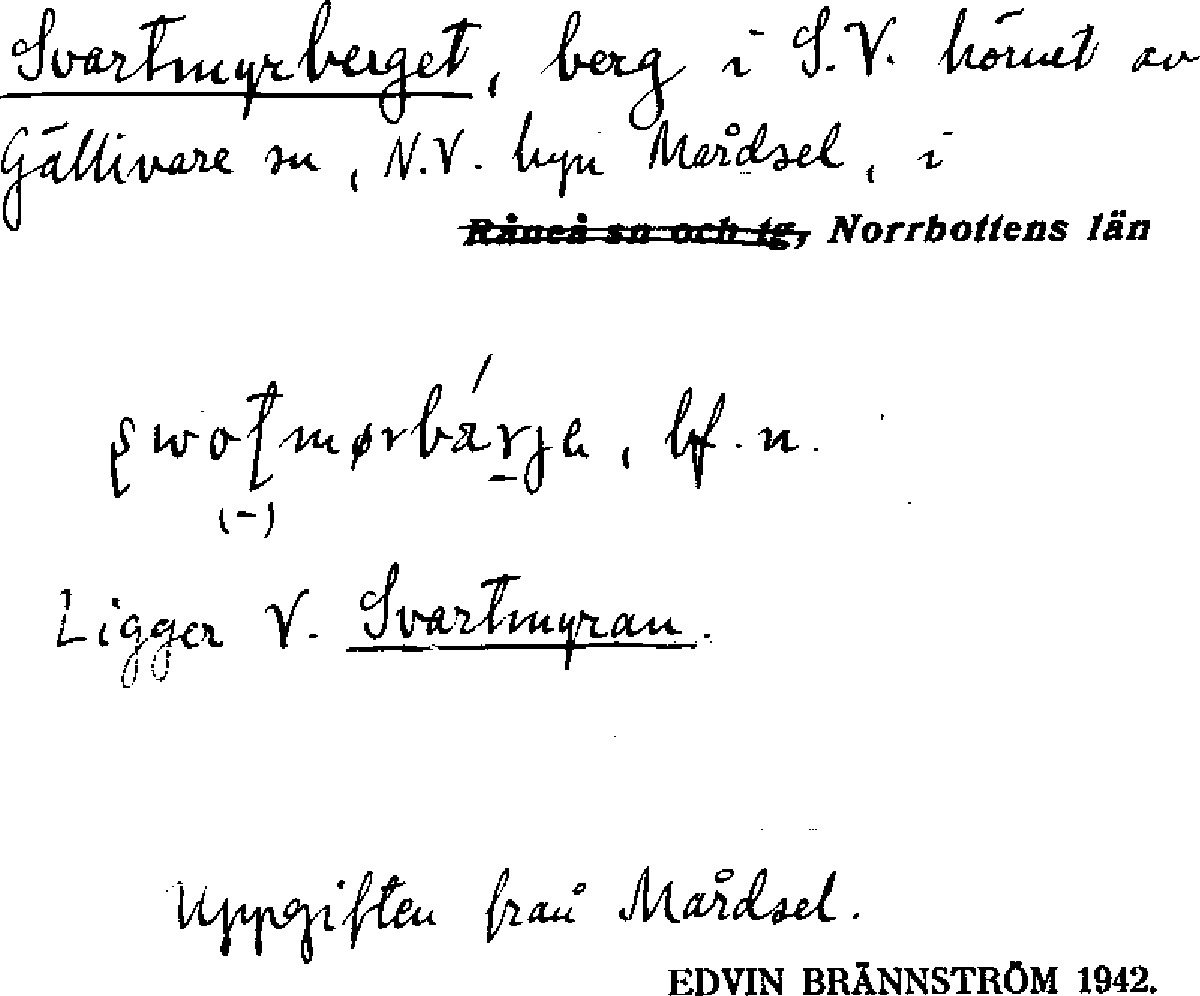 Svartmyrberget, berg i S.V. hörnet av
Gällivare sn, N.V. byn Mårdsel, i
Råneå sn och tg, Norrbottens län
bf. n.
(-)
Ligger V. Svartmyran.
Uppgiften från Mårdsel.
EDVIN BRÄNNSTRÖM 1942.